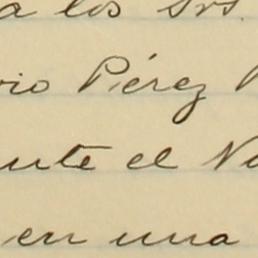 a los Srs.
rio Pérez
nte el
en una